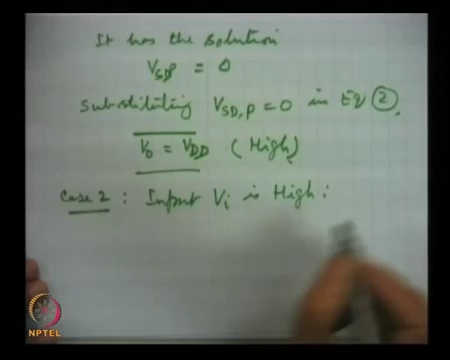 It has the solution
V_SDP = 0
Substituting V_SD,P = 0 in Eq ②.
V_0 = V_DD (High)
Case 2 : Input V_i is High :
NPTEL